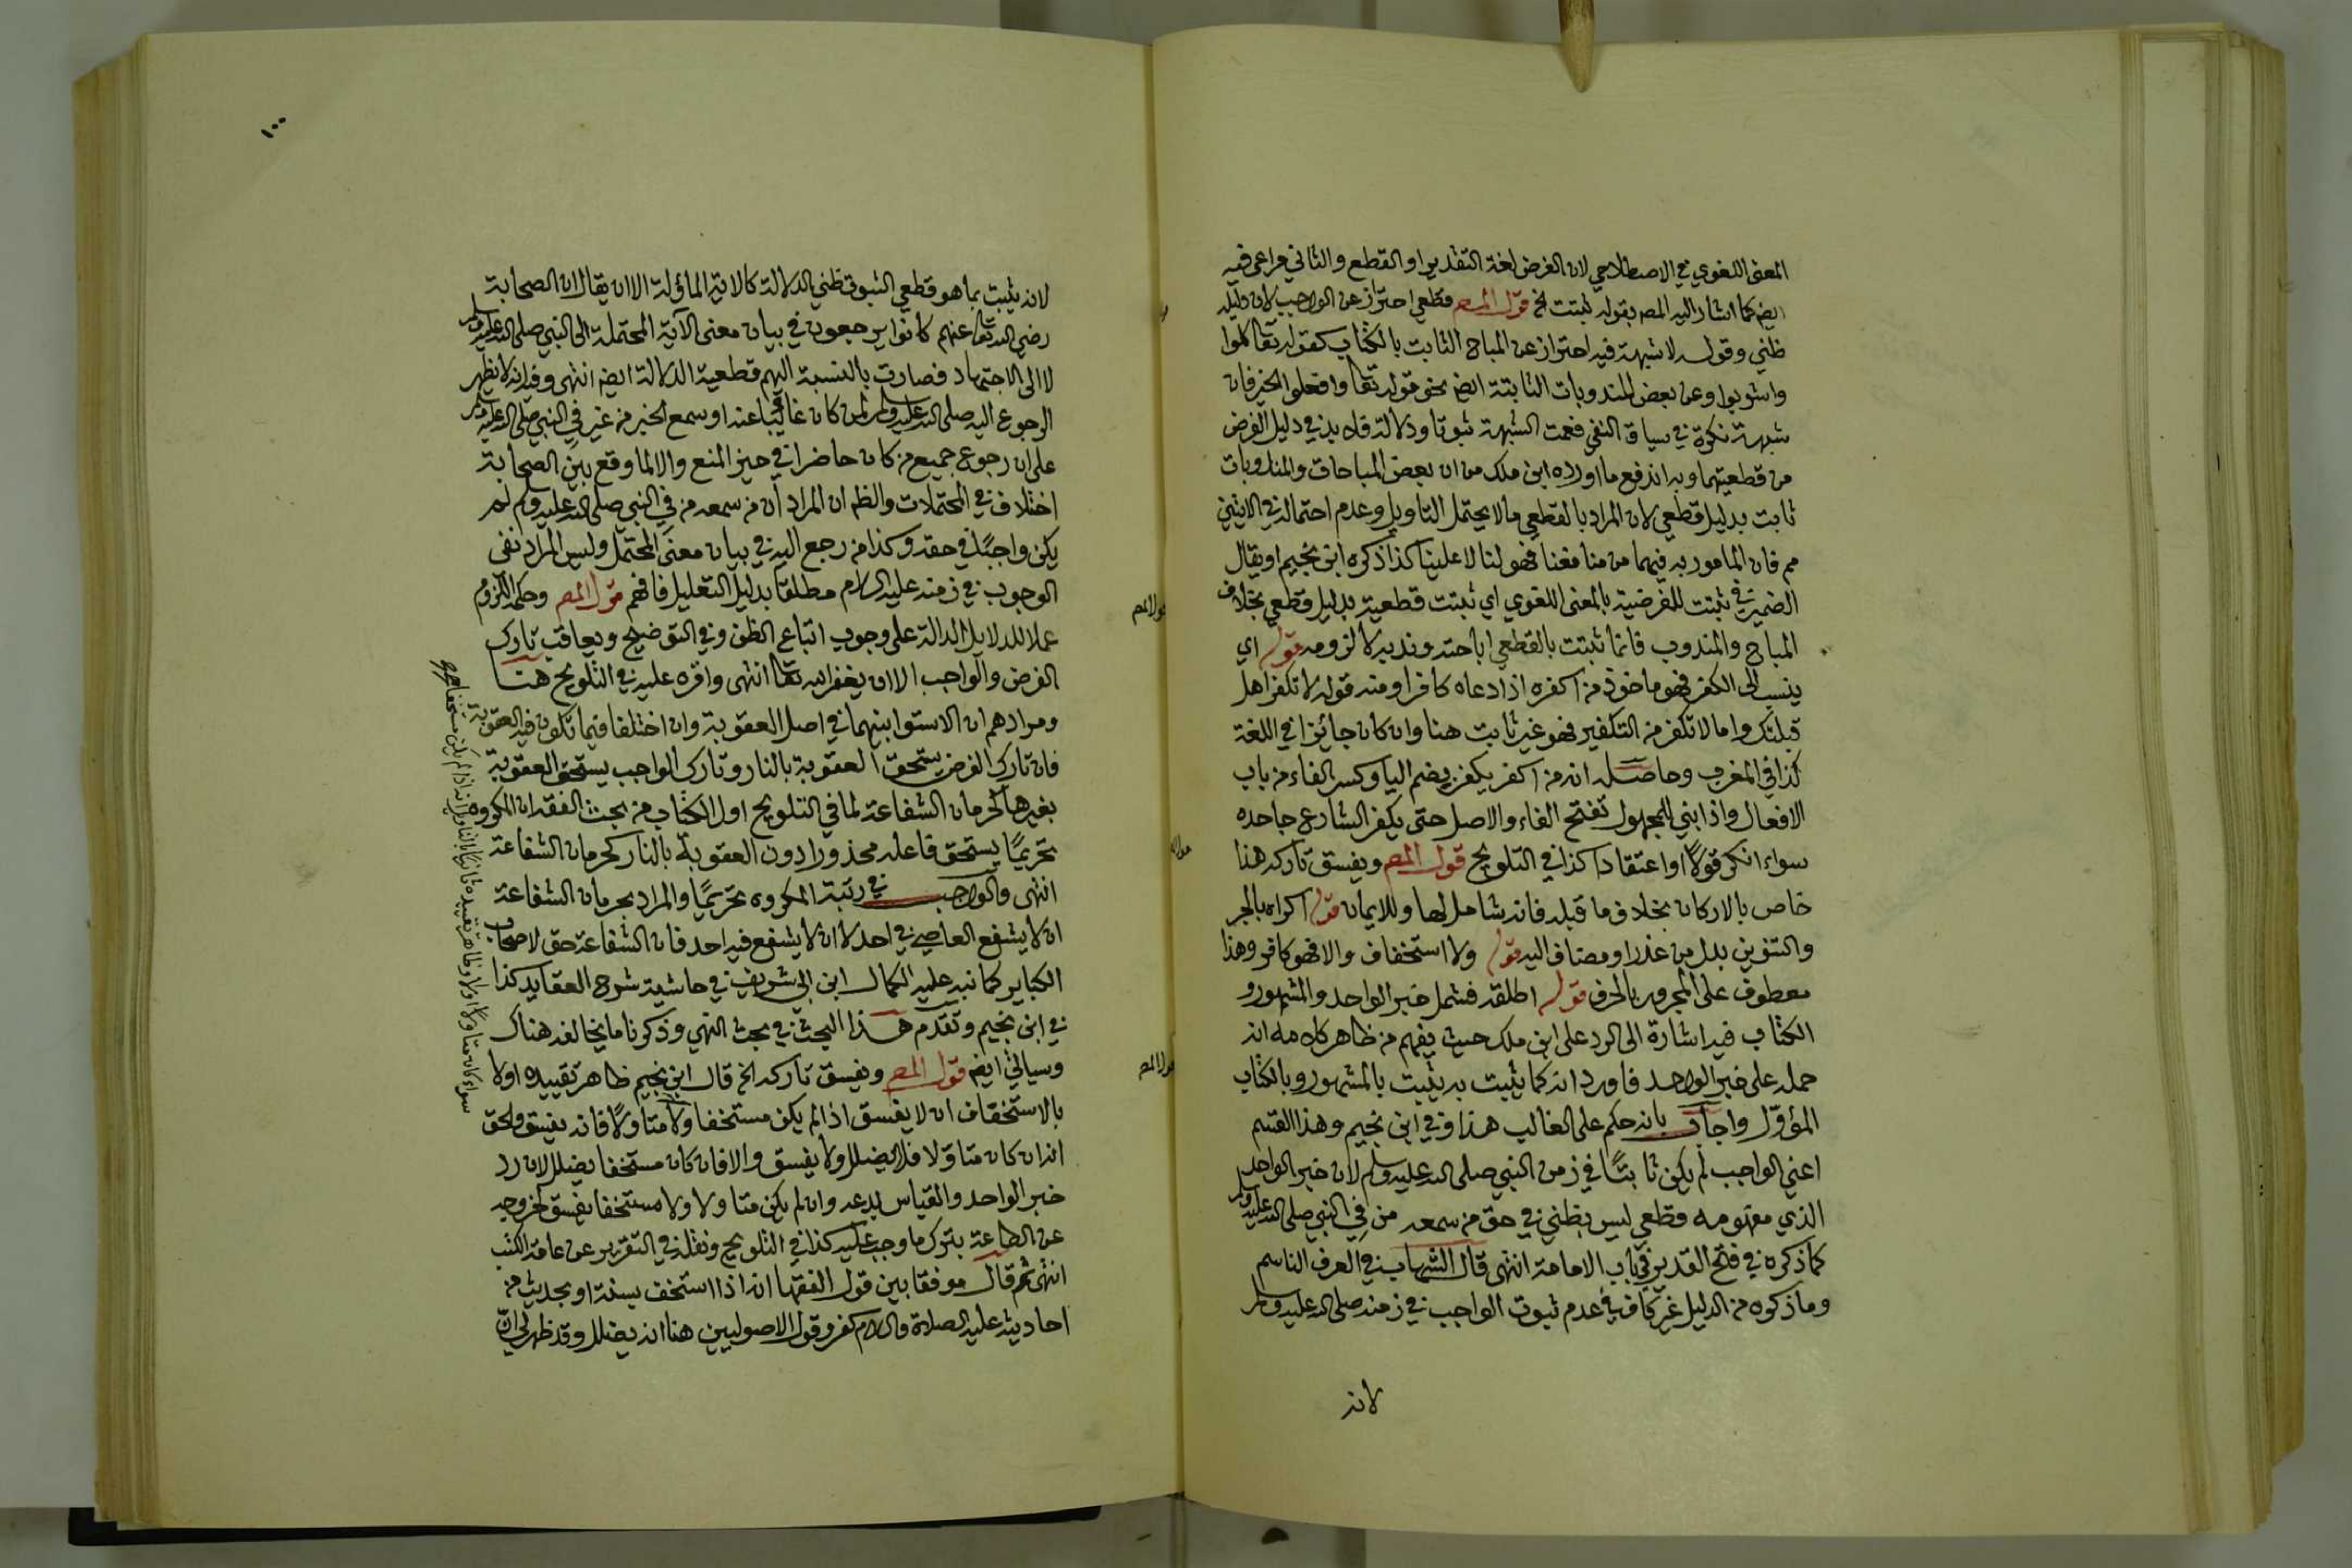 المعنى اللغوي في الاصطلاحي لان الفرض لغة التقدير او القطع والثاني مراعى فيه
ايضا كما اشار اليه المصـ بقوله ثبتت الخ قول المصـ قطعي احتراز عن الواجب لان دليله
ظني وقوله لا شبهة فيه احتراز عن المباح الثابت بالكتاب كقوله تعا كلوا
واشربوا وعن بعض المندوبات الثابتة ايضا نحو قوله تعا وافعلوا الخير فان
شبهة نكرة في سياق النفي فعمت الشبهة ثبوتا ودلالة فلا بد في دليل الفرض
من قطعيتهما وبه اندفع ما اورده ابن ملك من ان بعض المباحات والمندوبات
ثابت بدليل قطعي لان المراد بالقطعي ما لا يحتمل التاويل وعدم احتماله في الايتين
مم فان المامور به فيهما من منافعنا فهو لنا لا علينا كذا ذكره ابن نجيم او يقال
الضمير في ثبتت للفرضية بالمعنى اللغوي اي ثبتت قطعيته بدليل قطعي بخلاف
المباح والمندوب فانما ثبتت بالقطعي اباحته وندبه لا لزومه قوله اي
ينسب الى الكفر فهو ماخوذ من اكفره اذا دعاه كافرا ومنه قوله لا تكفر اهل
قبلتك واما لا تكفر من التكفير فهو غير ثابت هنا وان كان جائزا في اللغة
كذا في المغرب وحاصله انه من اكفر يكفر بضم اليا وكسر الفاء من باب
الافعال واذا بني للمجهول تفتح الفاء والاصل حتى يكفر الشارع جاحده
سواء انكر قولًا او اعتقادا كذا في التلويح قول المصـ ويفسق تاركه هذا
خاص بالاركان بخلاف ما قبله فانه شامل لها وللايمان قوله اكراه بالجر
والتنوين بدل من عذر او مضاف اليه قوله ولا استخفاف والا فهو كافر وهذا
معطوف على المجرور بالحرف قوله اطلقه فشمل خبر الواحد والمشهور و
الكتاب فيه اشارة الى الرد على ابن ملك حيث يفهم من ظاهر كلامه انه
حمله على خبر الواحد فاورد انه كما يثبت به يثبت بالمشهور وبالكتاب
المؤوّل واجاب بانه حكم على الغالب هذا وفي ابن نجيم وهذا القسم
اعني الواجب لم يكن ثابتًا في زمن النبي صلى الله عليه وسلم لان خبر الواحد
الذي مفهومه قطعي ليس بظني في حق من سمعه من في النبي صلى الله عليه وسلم
كما ذكره في فتح القدير في باب الامامة انتهى قال الشهاب في العرف الناسم
وما ذكره من الدليل غير كاف في عدم ثبوت الواجب في زمنه صلى الله عليه وسلم
لانه
١٠٠
لانه يثبت بما هو قطعي الثبوت ظني الدلالة كالاية المأولة الا ان يقال ان الصحابة
رضي الله تعا عنهم كانوا يرجعون في بيان معنى الآية المحتملة الى النبي صلى الله عليه وسلم
لا الى الاجتهاد فصارت بالنسبة اليهم قطعية الدلالة ايضا انتهى وفيه انه لا يظهر
الرجوع اليه صلى الله عليه وسلم لمن كان غائبًا عنه او سمع الخبر من غير في النبي صلى الله عليه وسلم
على ان رجوع جميع من كان حاضرا في حيز المنع والا لما وقع بين الصحابة
اختلاف في المحتملات والظ ان المراد أن من سمعه من في النبي صلى الله عليه وسلم لم
يكن واجبًا في حقه وكذا من رجع اليه في بيان معنى المحتمل وليس المراد نفي
الوجوب في زمنه عليه السلام مطلقا بدليل التعليل فافهم قول المصـ وحكمه اللزوم
عملا للدلايل الدالة على وجوب اتباع الظن وفي التوضيح ويعاقب تارك
الفرض والواجب الا ان يغفر الله تعا انتهى واقره عليه في التلويح هنا
ومرادهم ان الاستوا بينهما في اصل العقوبة وان اختلفا فيما تكون فيه العقوبة
فان تارك الفرض يستحق العقوبة بالنار وتارك الواجب يستحق العقوبة
بغيرها كحرمان الشفاعة لما في التلويح اول الكتاب من بحث الفقه ان المكروه
تحريمًا يستحق فاعله محذورا دون العقوبة بالنار كحرمان الشفاعة
انتهى والواجب في رتبة المكروه تحريمًا والمراد بحرمان الشفاعة
ان لا يشفع العاصي في احد لا ان لا يشفع فيه احد فان الشفاعة حق لاصحاب
الكباير كما نبه عليه الكمال ابن ابي شريف في حاشية شرح العقايد كذا
في ابن نجيم وتقدم هذا البحث في بحث النهي وذكرنا ما يخالفه هناك
وسيأتي ايضا قول المصـ ويفسق تاركه الخ قال ابن نجيم ظاهر تقييده اولا
بالاستخفاف ان لا يفسق اذا لم يكن مستخفا ولا متاولًا فانه يفسق ولحق
انه ان كان متاولا فلا يضلل ولا يفسق والا فان كان مستخفا يضلل لان رد
خبر الواحد والقياس بدعه وان لم يكن متاولا ولا مستخفا يفسق لخروجه
عن الطاعة بترك ما وجب عليه كذا في التلويح ونقله في التقرير عن عامة الكتب
انتهى ثم قال موفقا بين قول الفقها انه اذا استخف بسنة او بحديث من
احاديثه عليه الصلاة والسلام كفر وقول الاصوليين هنا انه يضلل وقد ظهر لي انّ
سواء كان متاولًا اولا وظاهر تقييده ثانيا بالتاول انه اذا لم يكن مستخفا صح
قول المصـ
قول المصـ